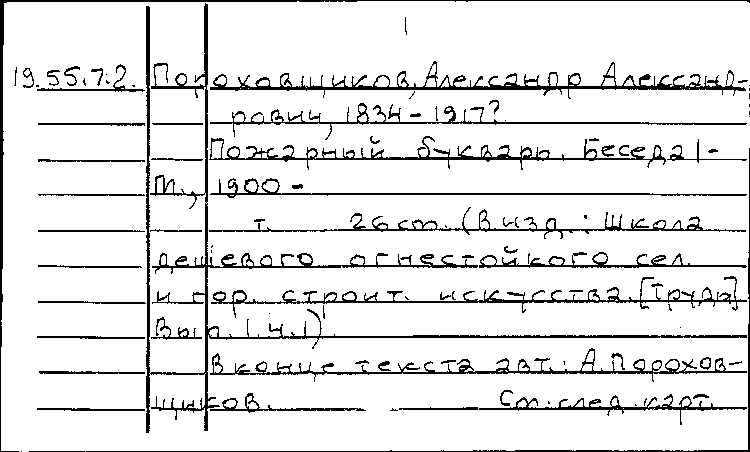 1
19.55.7.2. Пороховщиков, Александр Александ-
рович, 1834-1917?
Пожарный букварь. Беседа 1-
М., 1900-
т. 26 cm. (В изд.: Школа
дешевого огнестойкого сел.
и гор. строит. искусства. [Труды]
Вып. 1. ч. 1)
В конце текста авт.: А. Порохов-
щиков. См. след. карт.